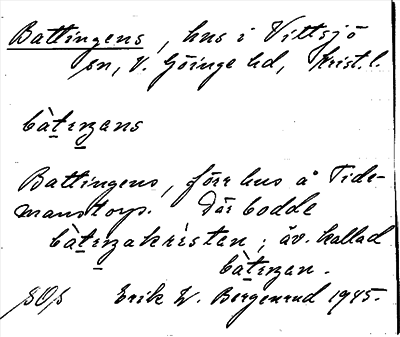 Battingens, hus i Vittsjö
sn, V. Göinge hd, Krist. l.
bàteŋans
Battingens, förr hus å Tide-
manstorp. Där bodde
bàteŋakristen; äv. kallad
bàteŋan.
SOS Erik W. Bergenrud 1945.